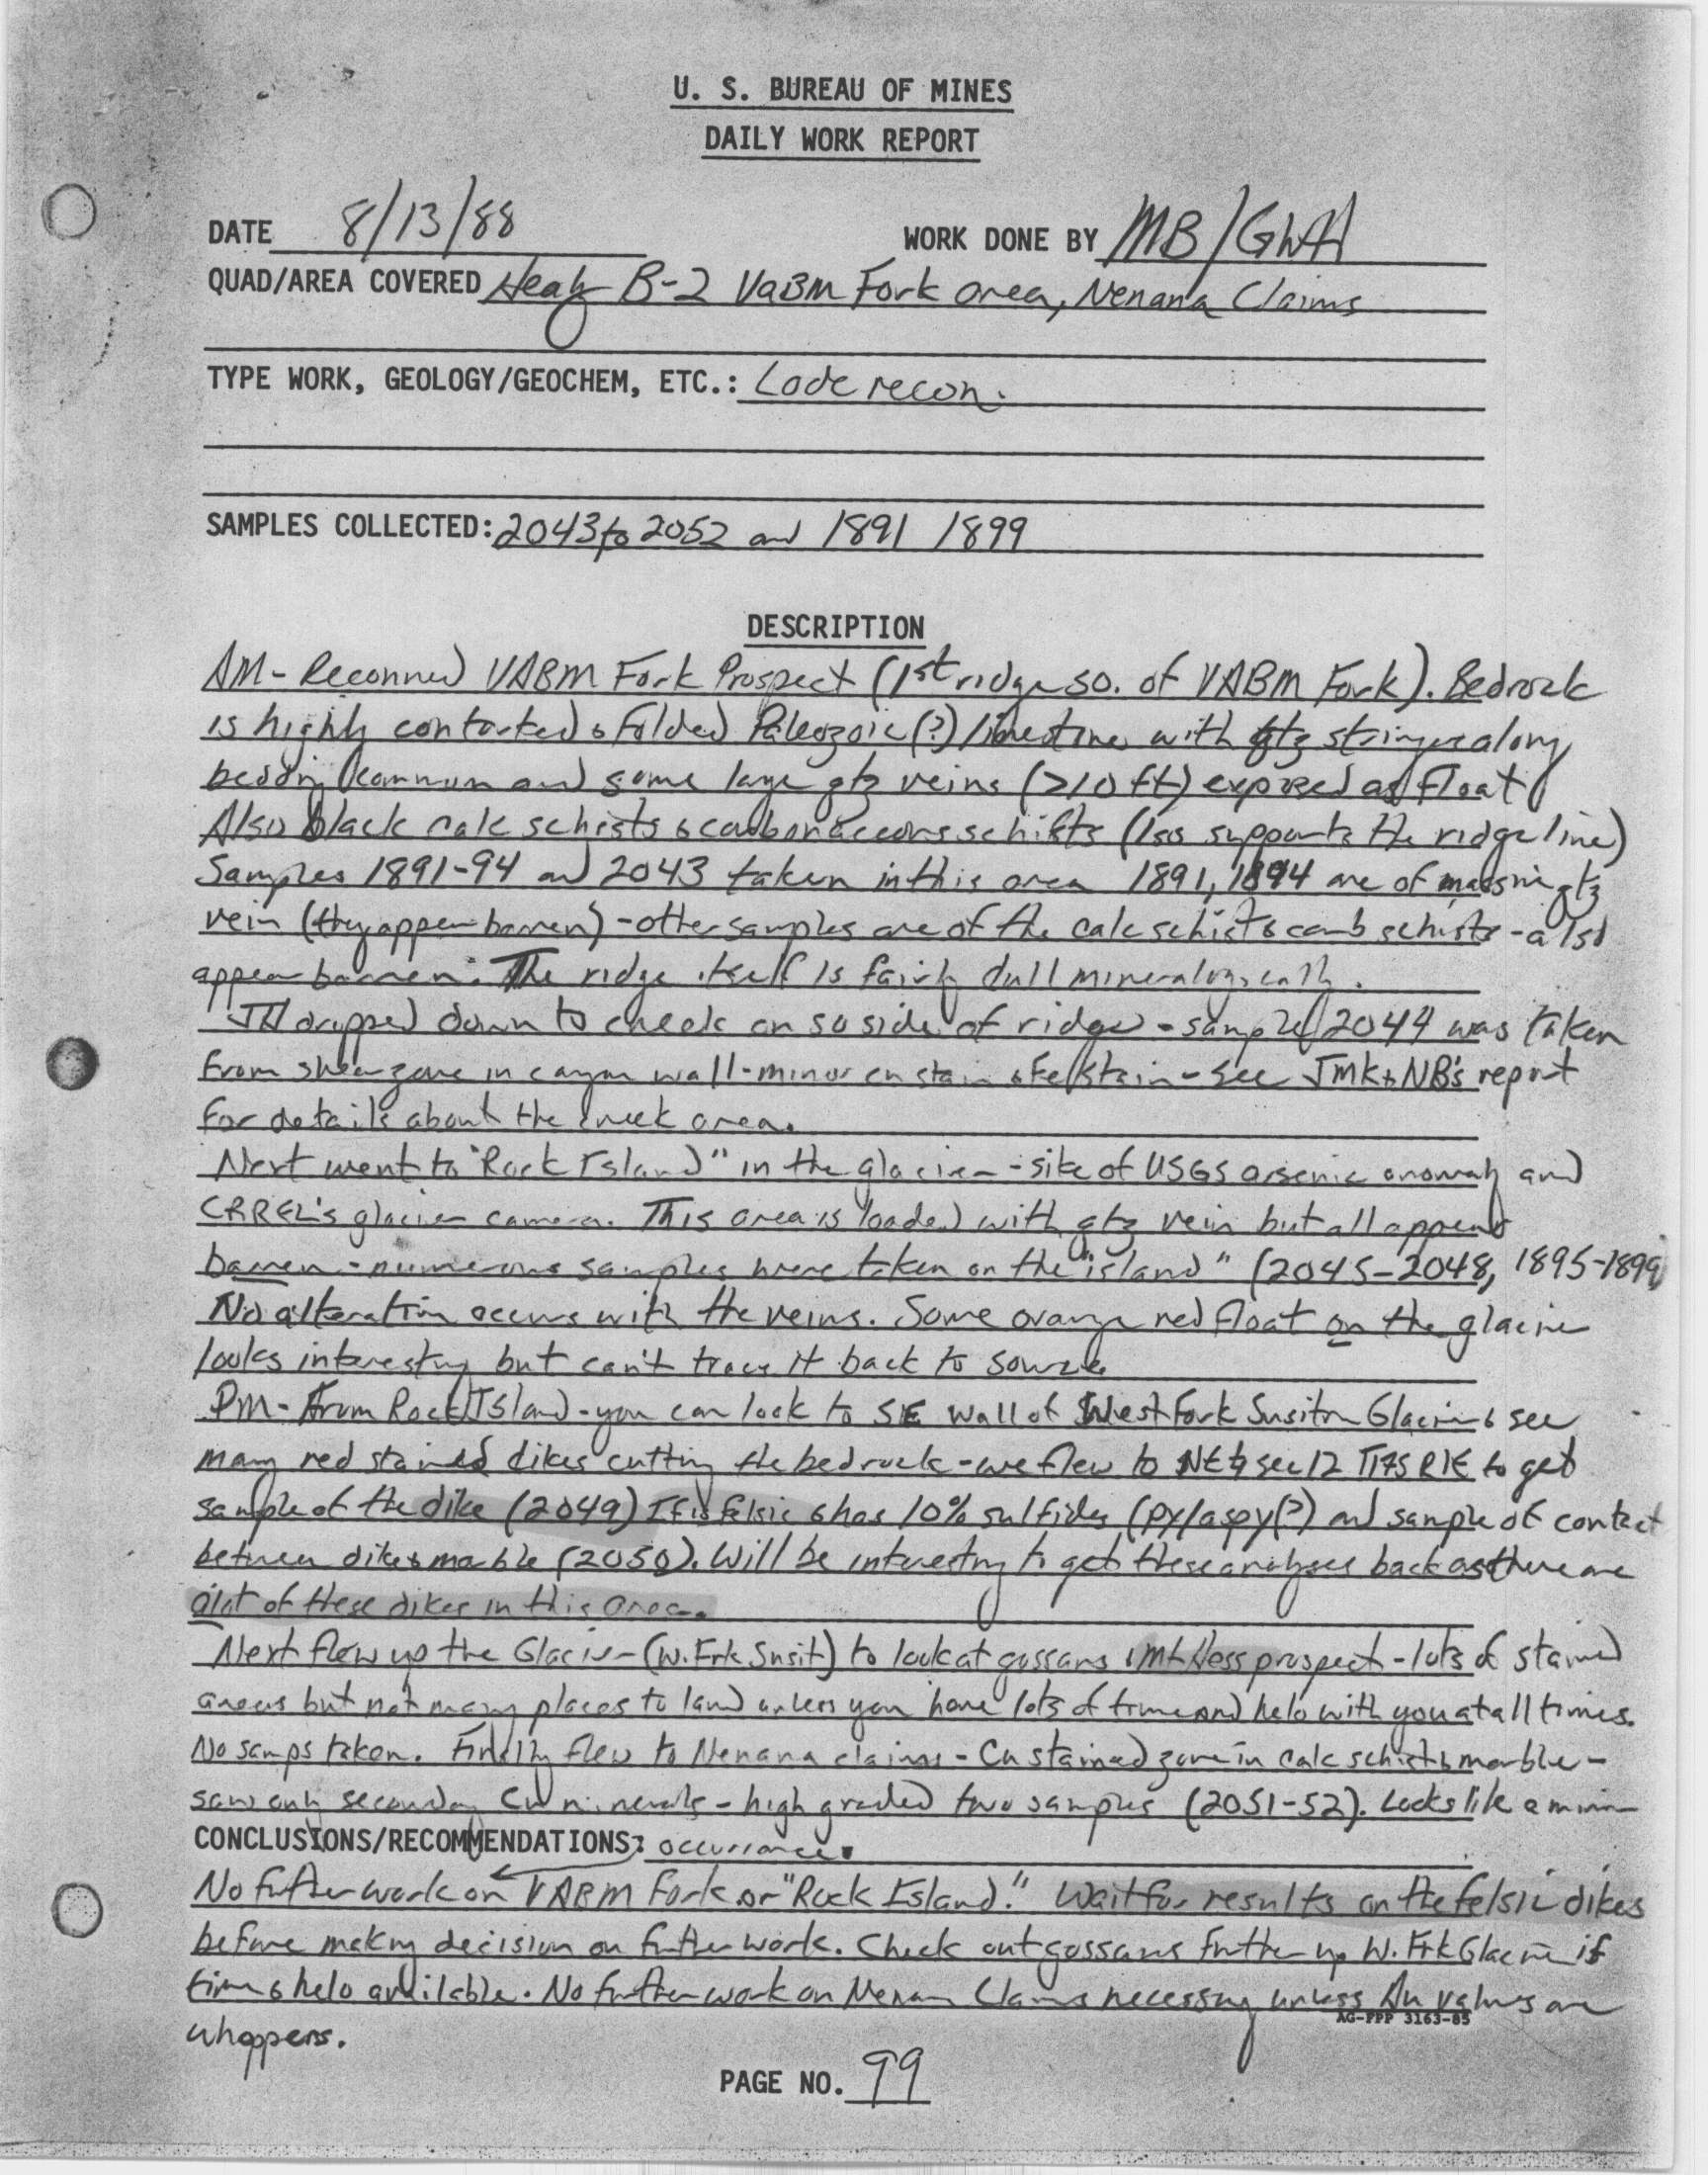 U. S. BUREAU OF MINES
DAILY WORK REPORT
DATE 8/13/88 WORK DONE BY MB/GWH
QUAD/AREA COVERED Healy B-2 VABM Fork area, Nenana Claims
TYPE WORK, GEOLOGY/GEOCHEM, ETC.: Lode recon.
SAMPLES COLLECTED: 2043 to 2052 and 1891 1899
DESCRIPTION
AM- Reconned VABM Fork Prospect (1st ridge so. of VABM Fork). Bedrock
is highly contorted & folded Paleozoic(?) limestone with qtz stringers along
bedding common and some large qtz veins (>10 ft) exposed as float
Also black calc schists & carbonaceous schists (lss supports the ridge line)
Samples 1891-94 and 2043 taken in this area 1891, 1894 are of massive qtz
vein (they appear barren) - other samples are of the calc schists & carb schists - also
appear barren. The ridge itself is fairly dull mineralogically.
dropped down to creek on so side of ridge - sample 2044 was taken
from shear zone in canyon wall - minor cu stain & Fe stain - see JMK & NB's report
for details about the creek area.
Next went to "Rock Island" in the glacier - site of USGS arsenic anomaly and
CRREL's glacier camera. This area is loaded with qtz vein but all appear
barren - numerous samples were taken on the "island" (2045-2048, 1895-1899)
No alteration occurs with the veins. Some orange red float on the glacier
looks interesting but can't trace it back to source.
PM- From Rock Island - you can look to SE wall of West Fork Susitna Glacier & see
many red stained dikes cutting the bedrock - we flew to NE¼ sec 12 T17S R1E to get
sample of the dike (2049) It is felsic & has 10% sulfides (py/aspy(?)) and sample of contact
between dike & marble (2050). Will be interesting to get these analyses back as there are
alot of these dikes in this area.
Next flew up the Glacier (W. Frk Susit) to look at gossans & Mt Hess prospect - lots of stained
areas but not many places to land unless you have lots of time and helo with you at all times.
No samps taken. Finally flew to Nenana claims - Cu stained zone in calc schist & marble -
saw only secondary Cu minerals - high graded two samples (2051-52). Looks like a minor
CONCLUSIONS/RECOMMENDATIONS: occurrance.
No further work on VABM Fork or "Rock Island." Wait for results on the felsic dikes
before making decision on further work. Check out gossans further up W. Frk Glacier if
time & helo available. No further work on Nenana Claims necessary unless Au values are
AG-FPP 3163-85
whoppers.
PAGE NO. 99